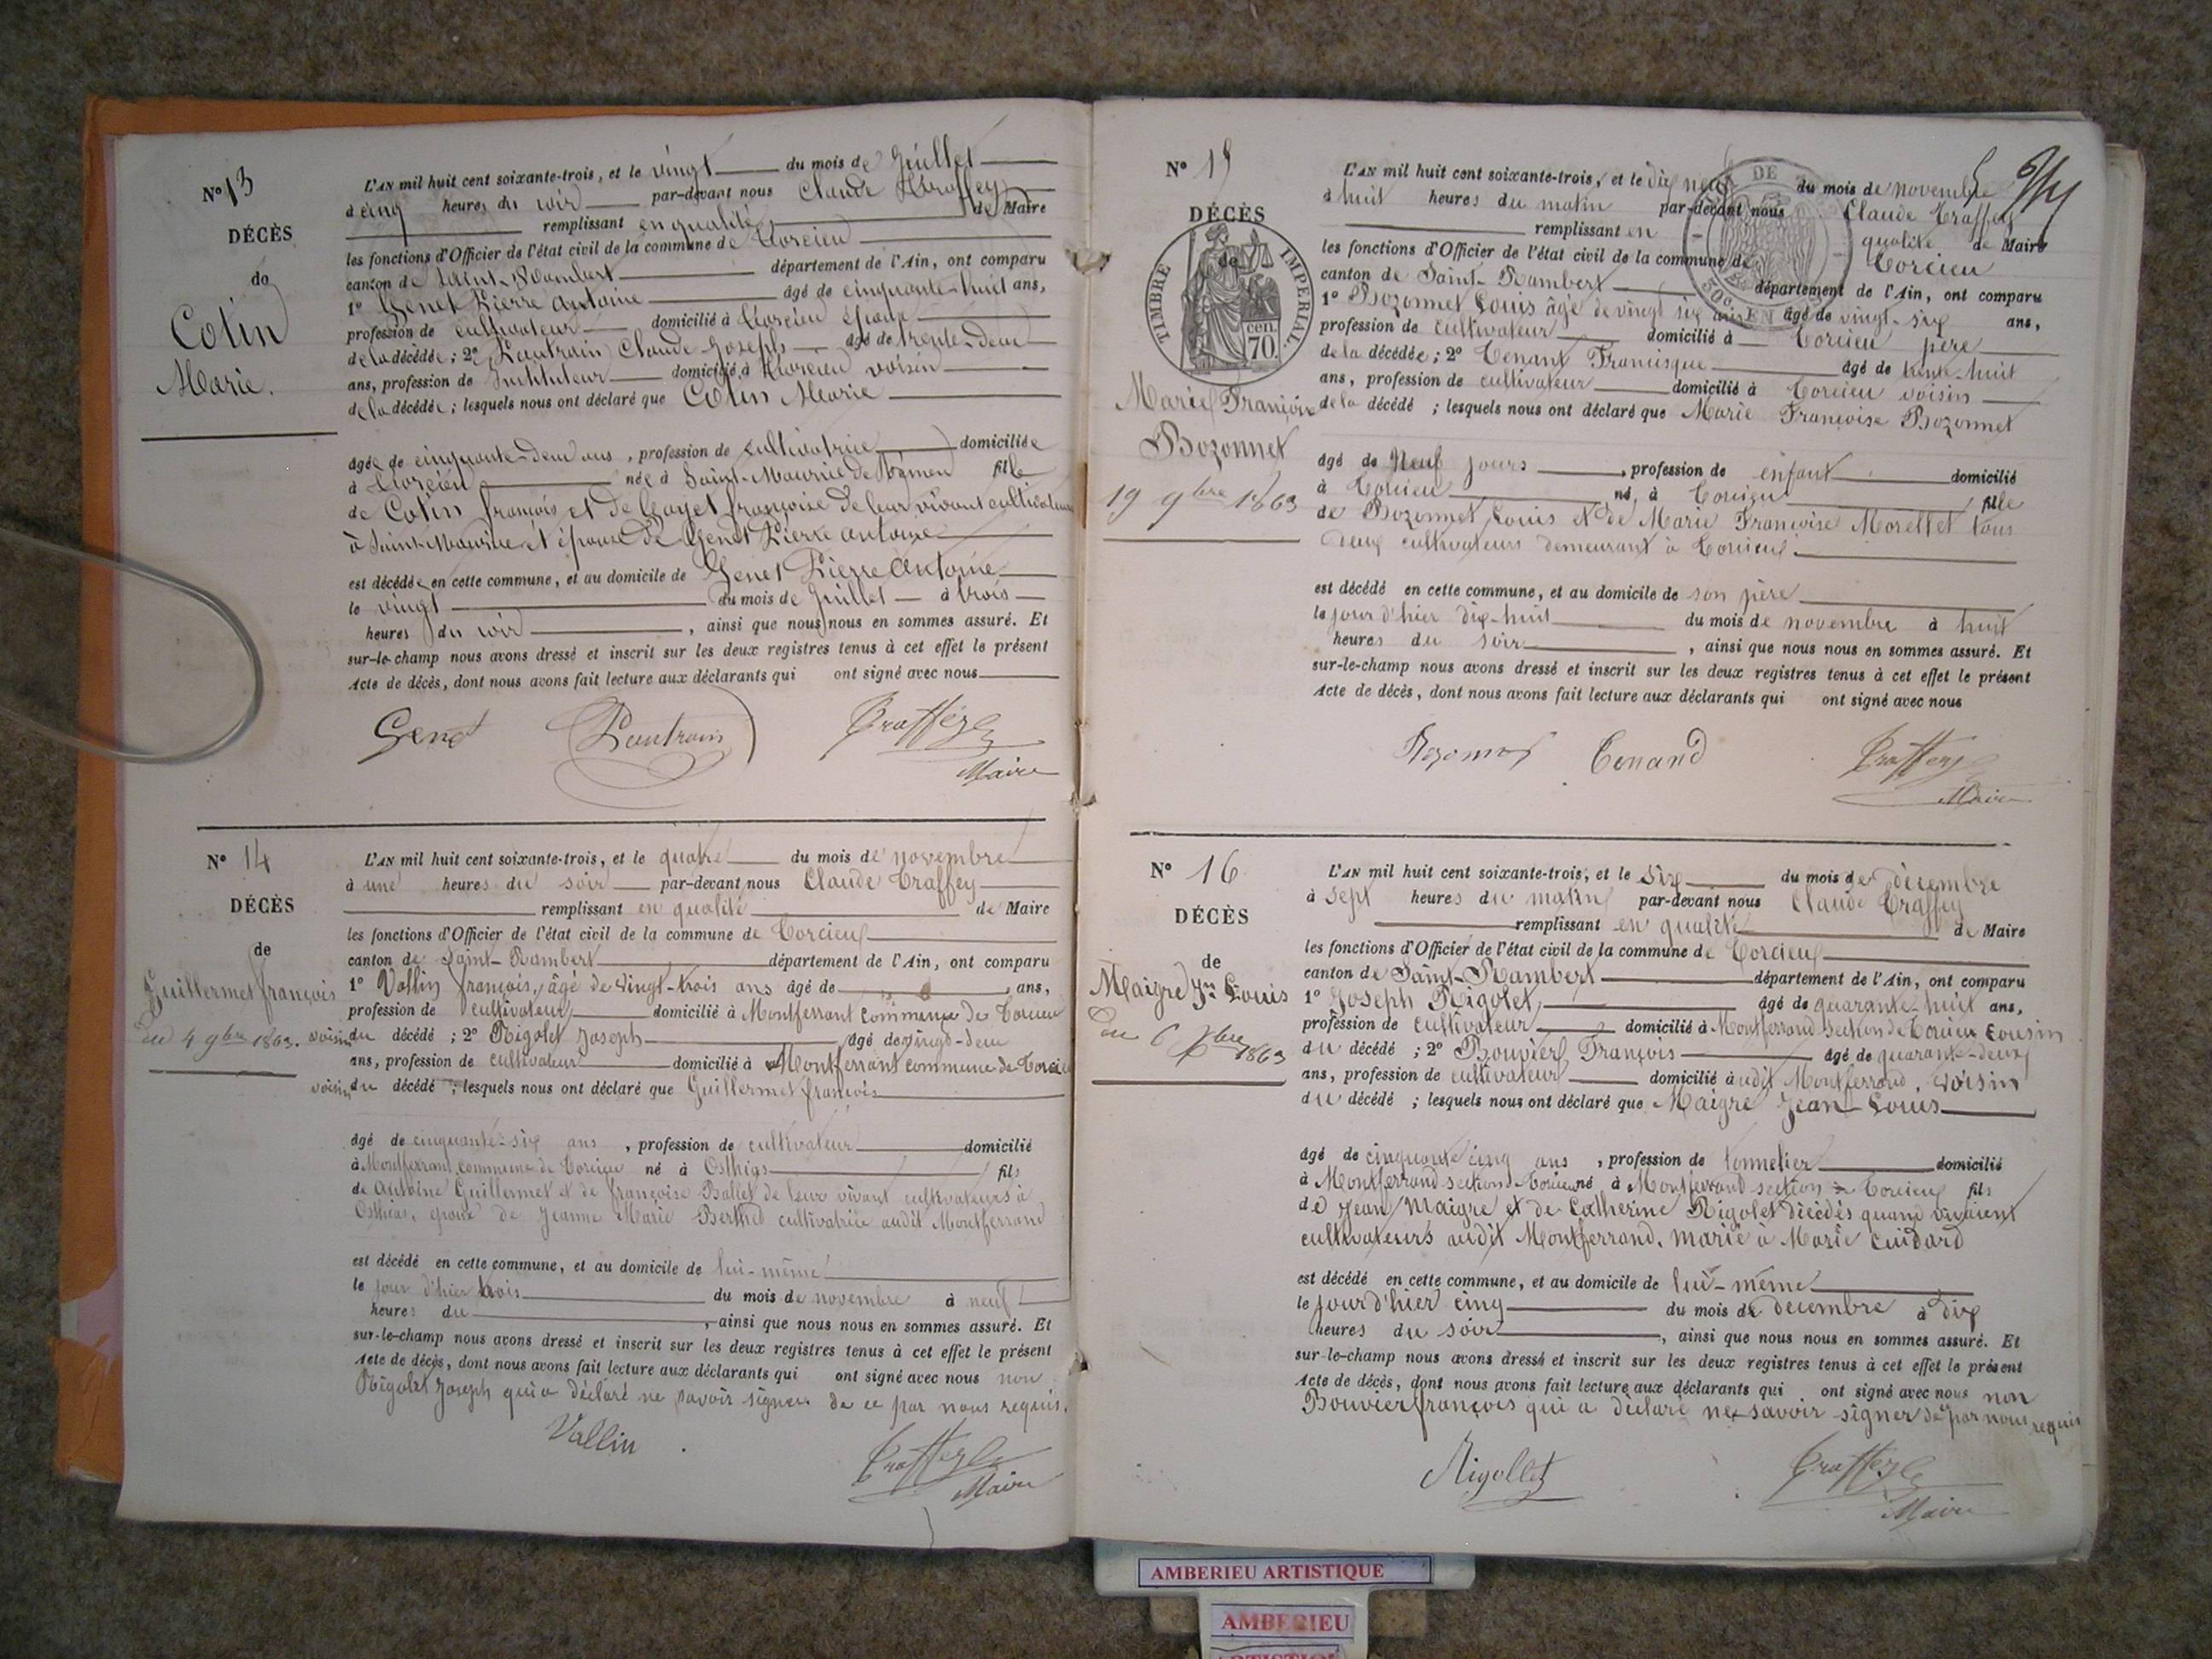 N° 13
DÉCÈS
de
Colin
Marie.
L'AN mil huit cent soixante-trois, et le vingt du mois de Juillet
à cinq heures du soir par-devant nous Claude Traffey
remplissant en qualité de Maire
les fonctions d'Officier de l'état civil de la commune de Torcieu
canton de Saint-Rambert département de l'Ain, ont comparu
1° Genet Pierre Antoine âgé de cinquante-huit ans,
profession de cultivateur domicilié à Torcieu époux
de la décédée ; 2° Lautrain Claude Joseph âgé de trente-deux
ans, profession de Instituteur domicilié à Torcieu voisin
de la décédée ; lesquels nous ont déclaré que Colin Marie
âgée de cinquante-deux ans, profession de cultivatrice domiciliée
à Torcieu née à Saint-Maurice de Rémen fille
de Colin françois et de françoise de leur vivant cultivateurs
à Saint-Maurice et épouse de Genet Pierre antoine
est décédée en cette commune, et au domicile de Genet Pierre Antoine
le vingt du mois de Juillet à trois
heures du soir, ainsi que nous nous en sommes assuré. Et
sur-le-champ nous avons dressé et inscrit sur les deux registres tenus à cet effet le présent
Acte de décès, dont nous avons fait lecture aux déclarants qui ont signé avec nous
Genet Lautrain Traffey
Maire
N° 14
DÉCÈS
de
Guillermet françois
Du 4 9bre 1863.
L'AN mil huit cent soixante-trois, et le quatre du mois de novembre
à une heures du soir par-devant nous Claude Traffey
remplissant en qualité de Maire
les fonctions d'Officier de l'état civil de la commune de Torcieu
canton de Saint-Rambert département de l'Ain, ont comparu
1° Vallin françois, âgé de vingt-trois ans âgé de ans,
profession de cultivateur domicilié à Montferrant commune de Torcieu
voisin du décédé ; 2° Rigolet Joseph âgé de vingt-deux
ans, profession de cultivateur domicilié à Montferrant commune de Torcieu
voisin du décédé ; lesquels nous ont déclaré que Guillermet françois
âgé de cinquante-six ans, profession de cultivateur domicilié
à Montferrant commune de Torcieu né à Osthias fils
de Antoine Guillermet et de françoise Ballet de leur vivant cultivateurs à
Osthias, époux de Jeanne Marie Berthet cultivatrice audit Montferrand
est décédé en cette commune, et au domicile de lui-même
le jour d'hier trois du mois de novembre à neuf
heures du, ainsi que nous nous en sommes assuré. Et
sur-le-champ nous avons dressé et inscrit sur les deux registres tenus à cet effet le présent
Acte de décès, dont nous avons fait lecture aux déclarants qui ont signé avec nous non
Rigolet Joseph qui a déclaré ne savoir signer de ce par nous requis.
Vallin Traffey
Maire
N° 15
DÉCÈS
de
TIMBRE IMPERIAL.
cen.
70.
Marie Françoise
Bozonnet
19 9bre 1863
L'AN mil huit cent soixante-trois, et le dix neuf du mois de novembre
à huit heures du matin par-devant nous Claude Traffey
remplissant en qualité de Maire
les fonctions d'Officier de l'état civil de la commune de Torcieu
canton de Saint-Rambert département de l'Ain, ont comparu
1° Bozonnet Louis âgé de vingt six ans âgé de vingt-six ans,
profession de cultivateur domicilié à Torcieu père
de la décédée ; 2° Tenant Francisque âgé de trente-huit
ans, profession de cultivateur domicilié à Torcieu voisin
de la décédé ; lesquels nous ont déclaré que Marie Françoise Bozonnet
âgé de Neuf jours, profession de enfant domicilié
à Torcieu né, à Torcieu fille
de Bozonnet Louis et de Marie Françoise Morellet tous
deux cultivateurs demeurant à Torcieu.
est décédé en cette commune, et au domicile de son père
le jour d'hier dix-huit du mois de novembre à huit
heures du soir, ainsi que nous nous en sommes assuré. Et
sur-le-champ nous avons dressé et inscrit sur les deux registres tenus à cet effet le présent
Acte de décès, dont nous avons fait lecture aux déclarants qui ont signé avec nous
Bozonnet Tenand Traffey
Maire
N° 16
DÉCÈS
de
Maigre Jn Louis
Du 6 Xbre 1863
L'AN mil huit cent soixante-trois, et le six du mois de décembre
à sept heures du matin par-devant nous Claude Traffey
remplissant en qualité de Maire
les fonctions d'Officier de l'état civil de la commune de Torcieu
canton de Saint-Rambert département de l'Ain, ont comparu
1° Joseph Rigolet âgé de quarante-huit ans,
profession de cultivateur domicilié à Montferrand section de Torcieu cousin
du décédé ; 2° Bouvier François âgé de quarante-deux
ans, profession de cultivateur domicilié audit Montferrand, voisin
du décédé ; lesquels nous ont déclaré que Maigre Jean-Louis
âgé de cinquante cinq ans, profession de tonnelier domicilié
à Montferrand section Torcieu né à Montferrand section de Torcieu fils
de Jean Maigre et de Catherine Rigolet décédés quand vivaient
cultivateurs audit Montferrand. marié à Marie Cuidard
est décédé en cette commune, et au domicile de lui-même
le jour d'hier cinq du mois de décembre à dix
heures du soir, ainsi que nous nous en sommes assuré. Et
sur-le-champ nous avons dressé et inscrit sur les deux registres tenus à cet effet le présent
Acte de décès, dont nous avons fait lecture aux déclarants qui ont signé avec nous non
Bouvier françois qui a déclaré ne savoir signer de ce par nous requis
Rigollet Traffey
Maire
AMBERIEU ARTISTIQUE
AMBERIEU
ARTISTIQUE